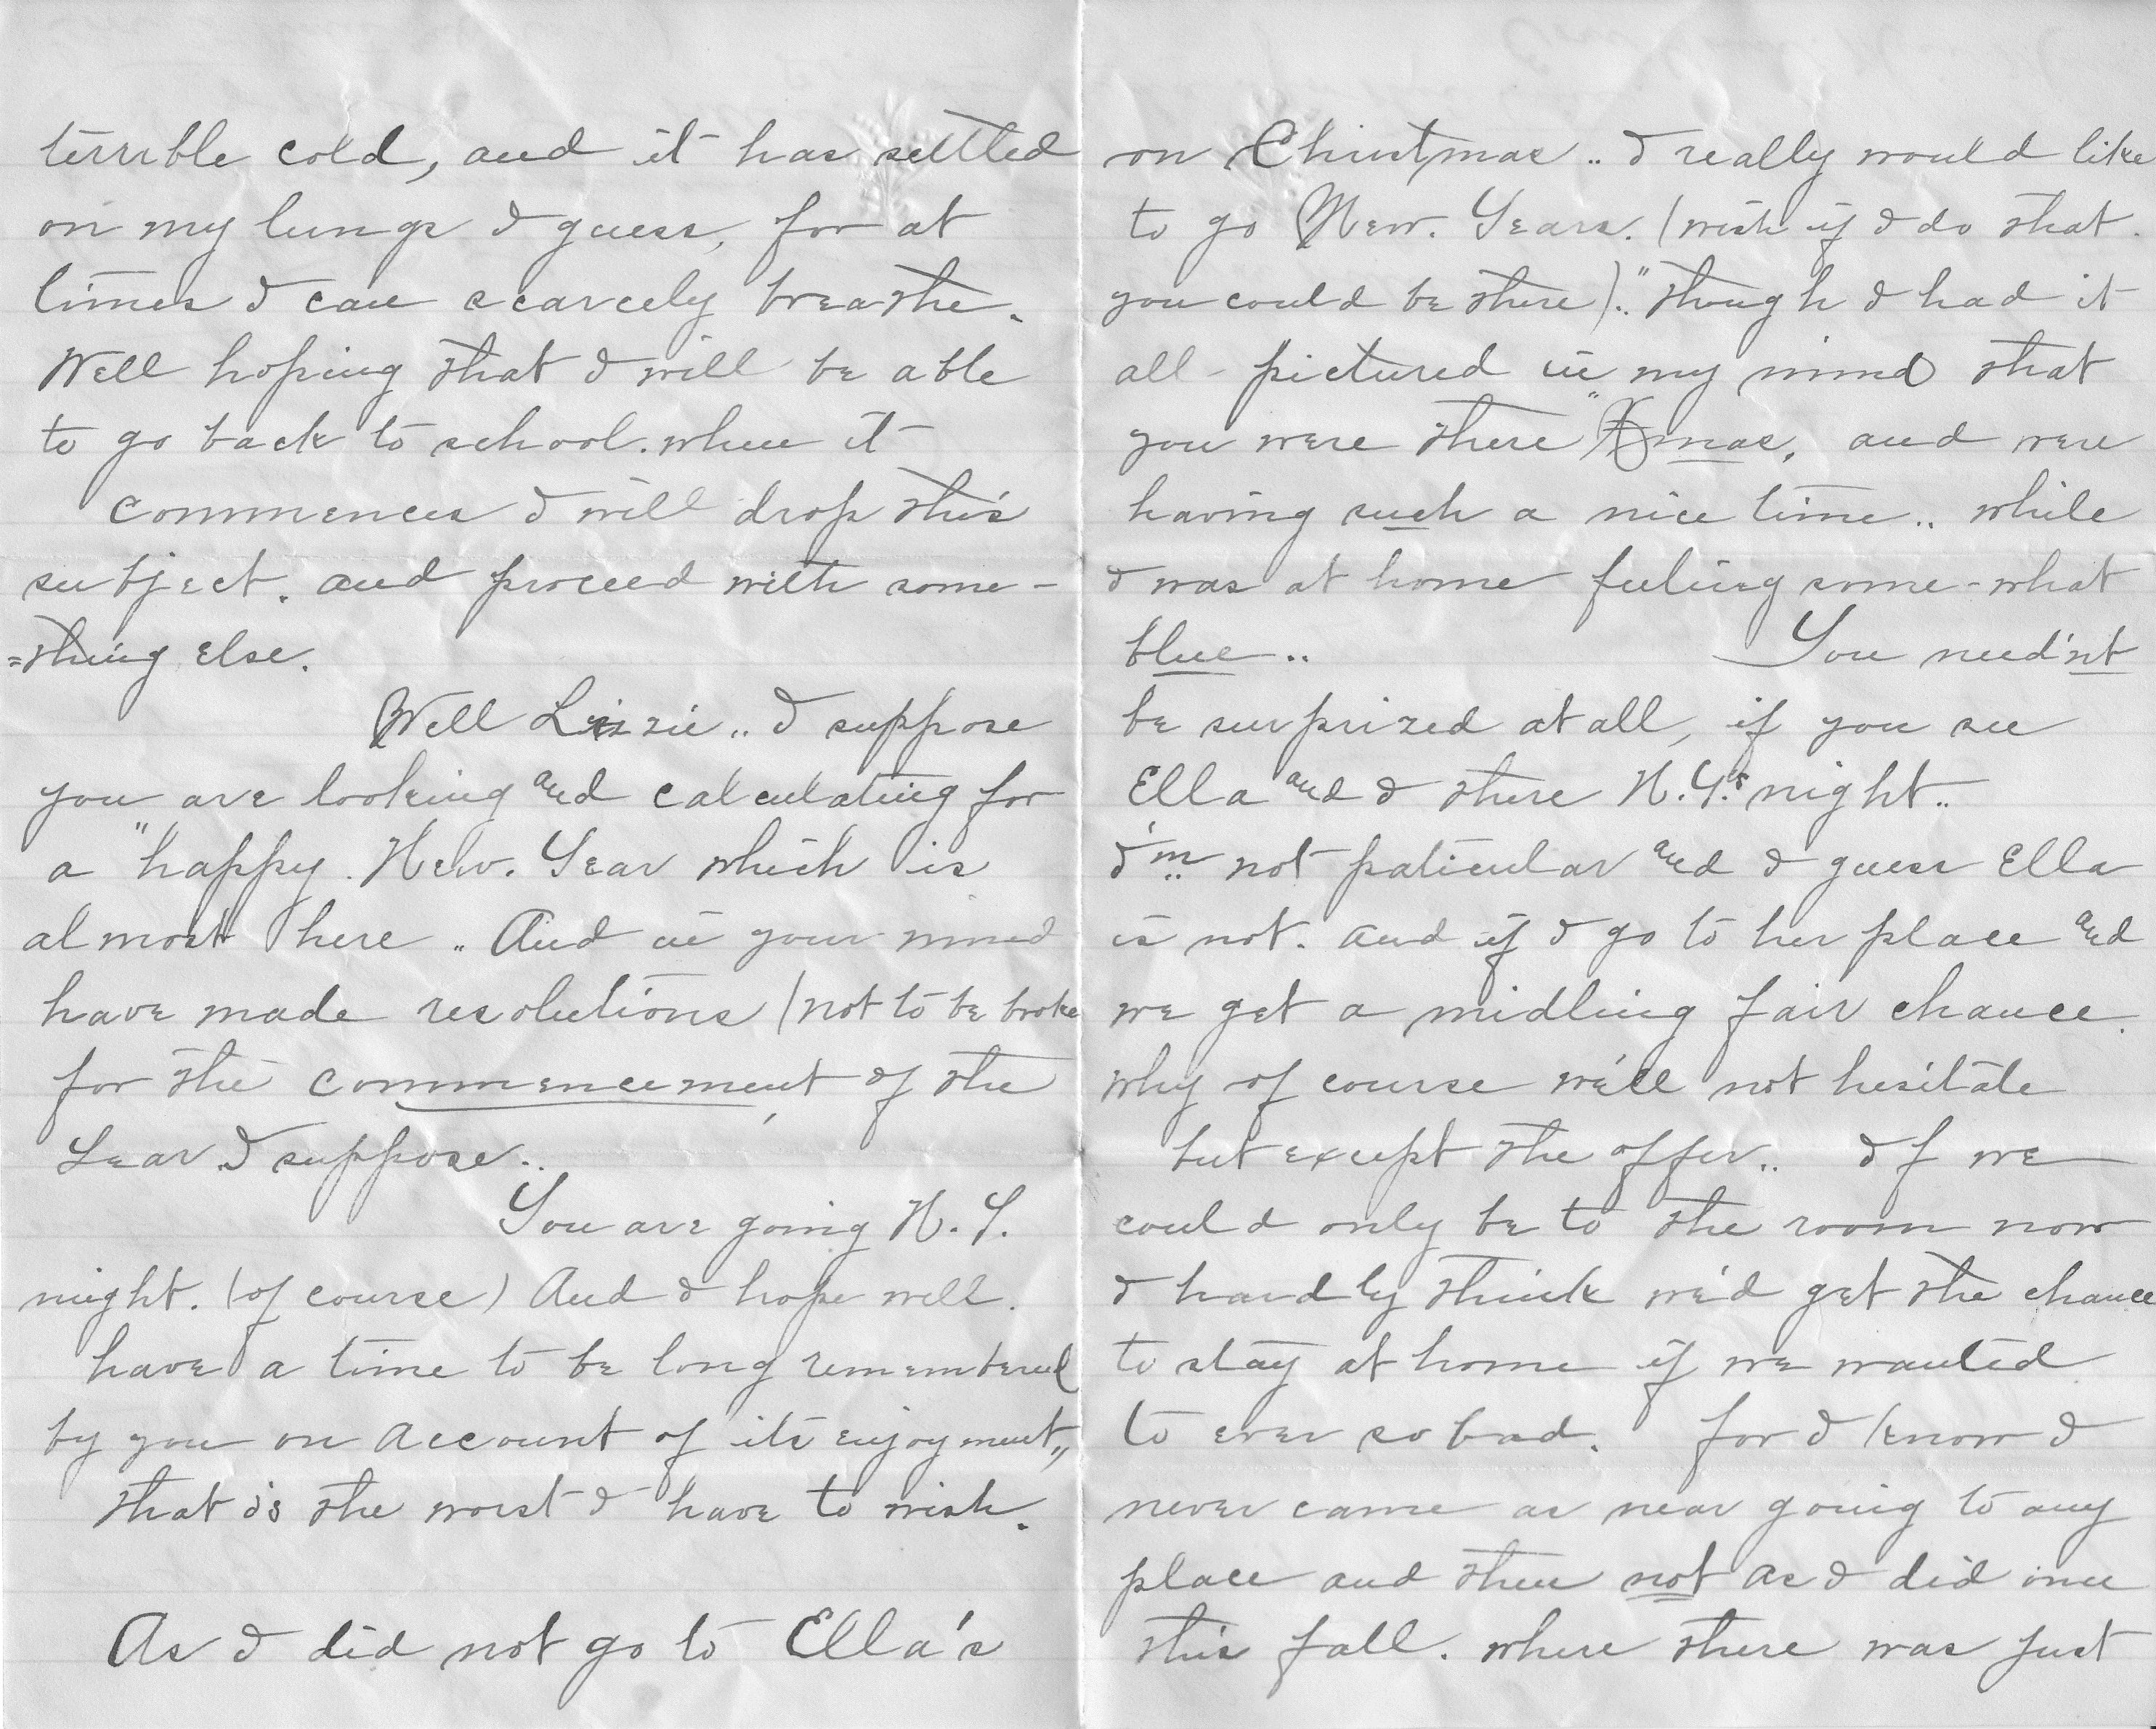 terrible cold, and it has settled
on my lungs I guess, for at
times I can scarcely breathe.
Well hoping that I will be able
to go back to school. when it
commences I will drop this
subject. and proceed with some-
=thing else.
Well Lizzie .. I suppose
you are looking and calculating for
a "happy. New. Year which is
almost here .. And in your mind
have made resolutions (not to be broke
for the commencement of the
Year I suppose..
You are going N. Y.
night. (of course) And I hope will.
have a time to be long remembered
by you on account of its enjoyment,,
that is the worst I have to wish.
As I did not go to Ella's
on Christmas .. I really would like
to go New. Years. (wish if I do that.
you could be there).." though I had it
all - pictured in my mind that
you were there "Xmas, and were
having such a nice time.. while
I was at home feeling some-what
blue .. You need'nt
be surprized at all, if you see
Ella and I there N.Y's night..
I'm not paticular and I guess Ella
is not. and if I go to her place and
we get a midling fair chance.
why of course we'll not hesitate
but except the offer.. If we
could only be to the room now
I hardly think we'd get the chance
to stay at home if we wanted
to ever so bad. for I know I
never came as near going to any
place and then not as I did once
this fall. where there was just